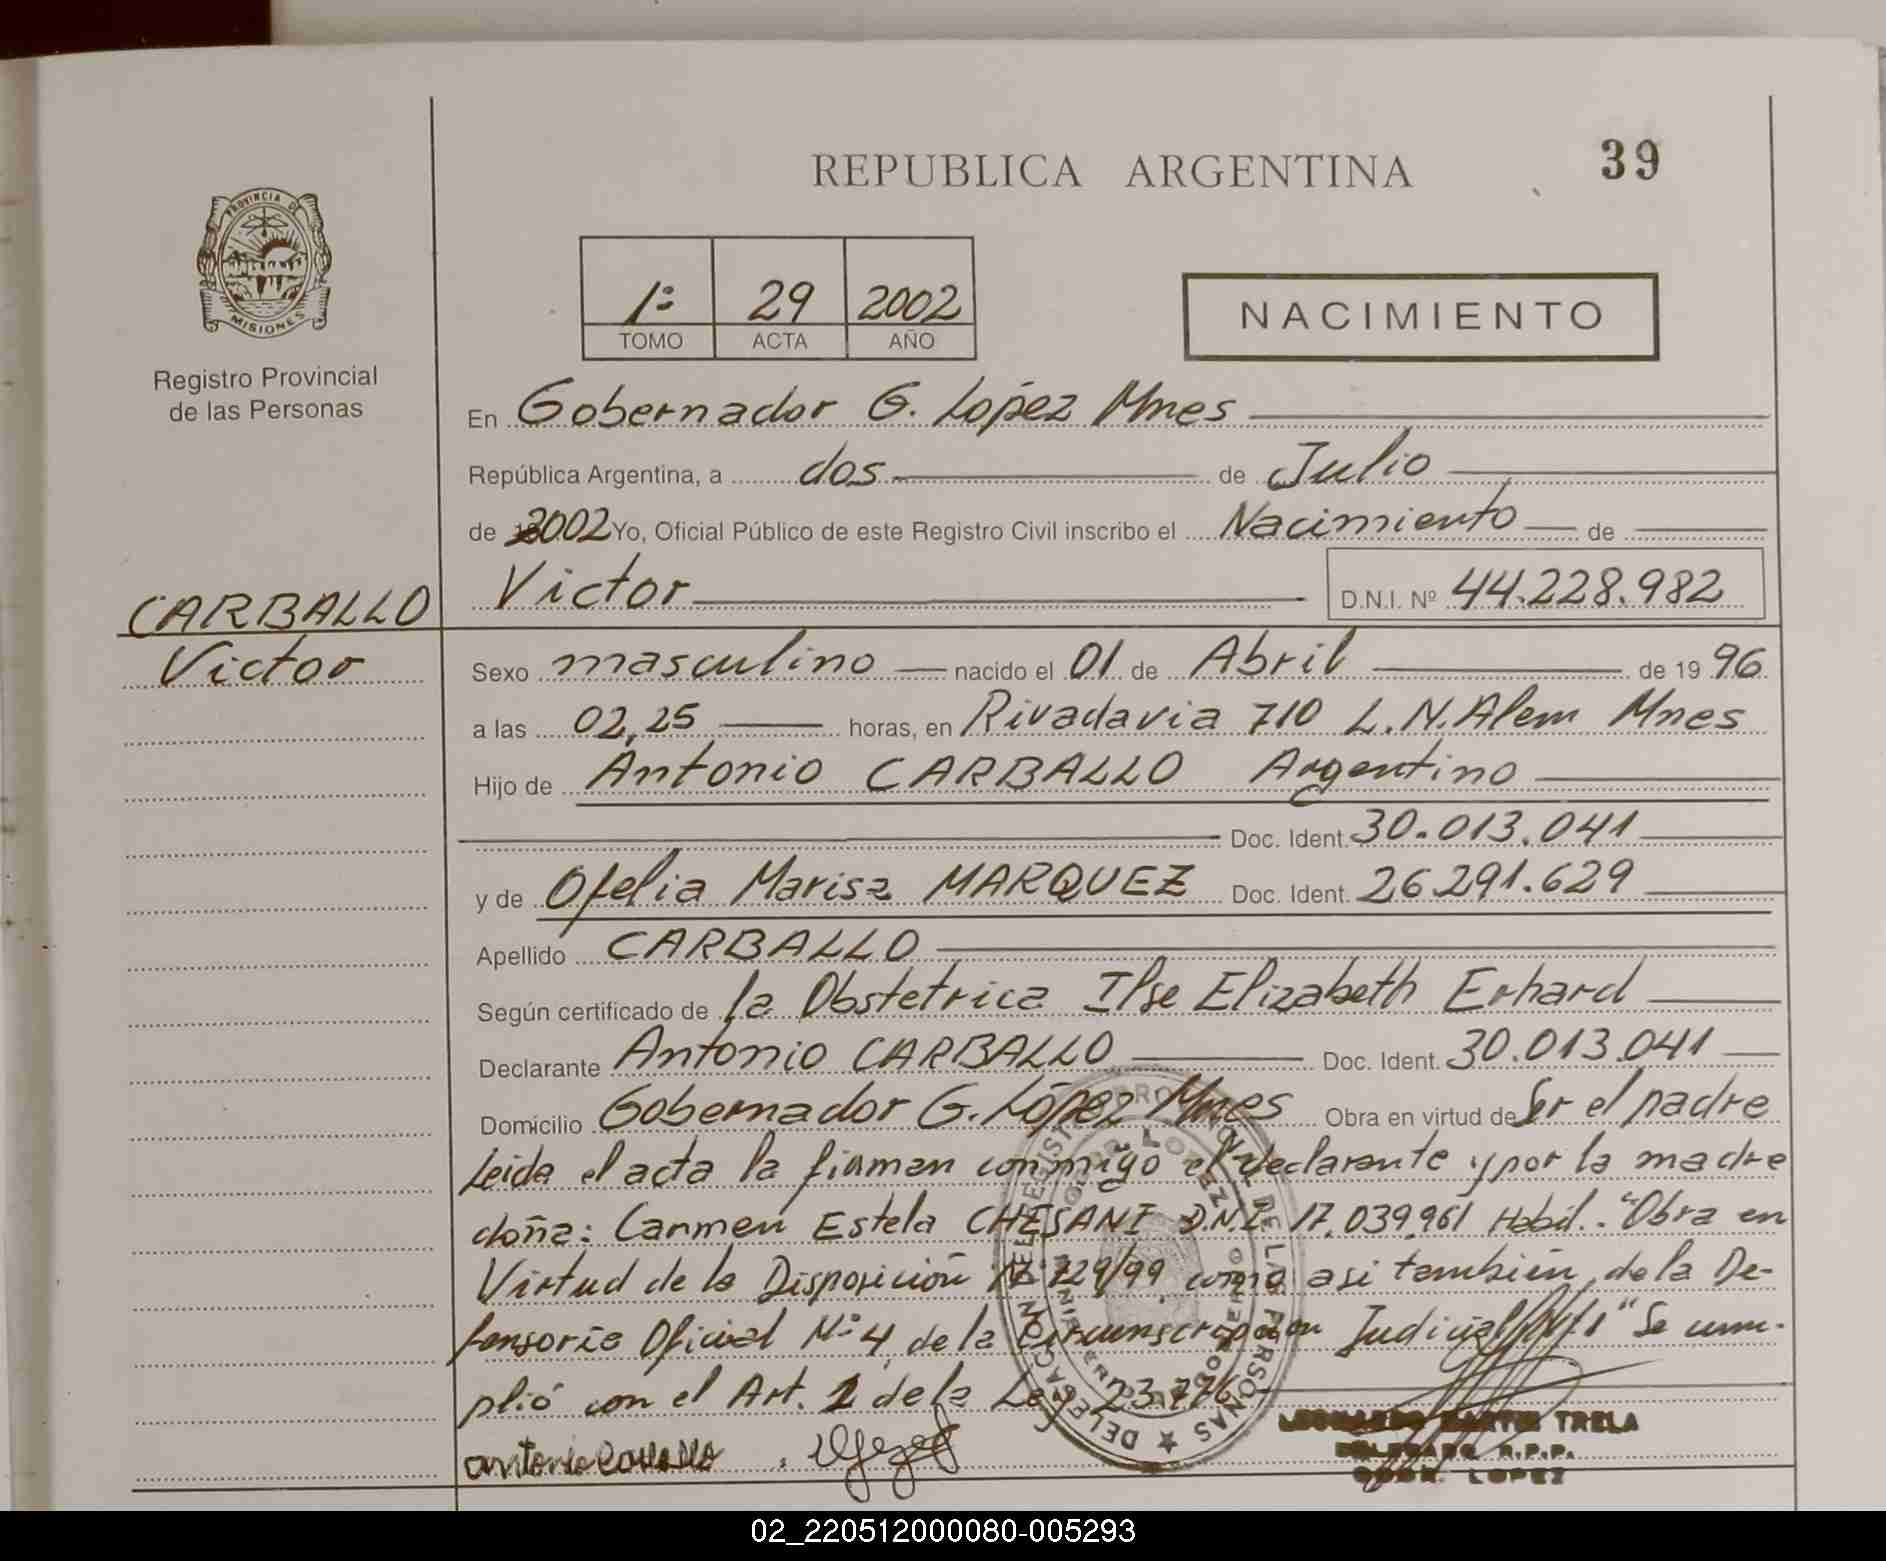 REPUBLICA ARGENTINA
39
PROVINCIA DE
MISIONES
Registro Provincial
de las Personas
1º 29 2002
TOMO ACTA AÑO
NACIMIENTO
En Gobernador G. López Mnes
República Argentina, a dos de Julio
de 2002 Yo, Oficial Público de este Registro Civil inscribo el Nacimiento de
Victor D.N.I. Nº 44.228.982
CARBALLO
Victor
Sexo masculino nacido el 01 de Abril de 1996
a las 02,25 horas, en Rivadavia 710 L.N.Alem Mnes
Hijo de Antonio CARBALLO Argentino
Doc. Ident. 30.013.041
y de Ofelia Marisa MARQUEZ Doc. Ident. 26.291.629
Apellido CARBALLO
Según certificado de la Obstetrica Ilse Elizabeth Erhard
Declarante Antonio CARBALLO Doc. Ident. 30.013.041
Domicilio Gobernador G. López Mnes Obra en virtud de Ser el padre
Leida el acta la firman conmigo el declarante y por la madre
doña: Carmen Estela CHESANI D.N.I. 17.039.961 Habil. "Obra en
Virtud de la Disposición Nº 229/99, como asi también, de la De-
fensoria Oficial Nº 4, de la Circunscripción Judicial " Se cum-
plió con el Art. 2 de la Ley 23.776
antonio Carballo
LEONARDO MARTIN TRELA
DELEGADO R.P.P.
GDOR. LOPEZ
02_220512000080-005293